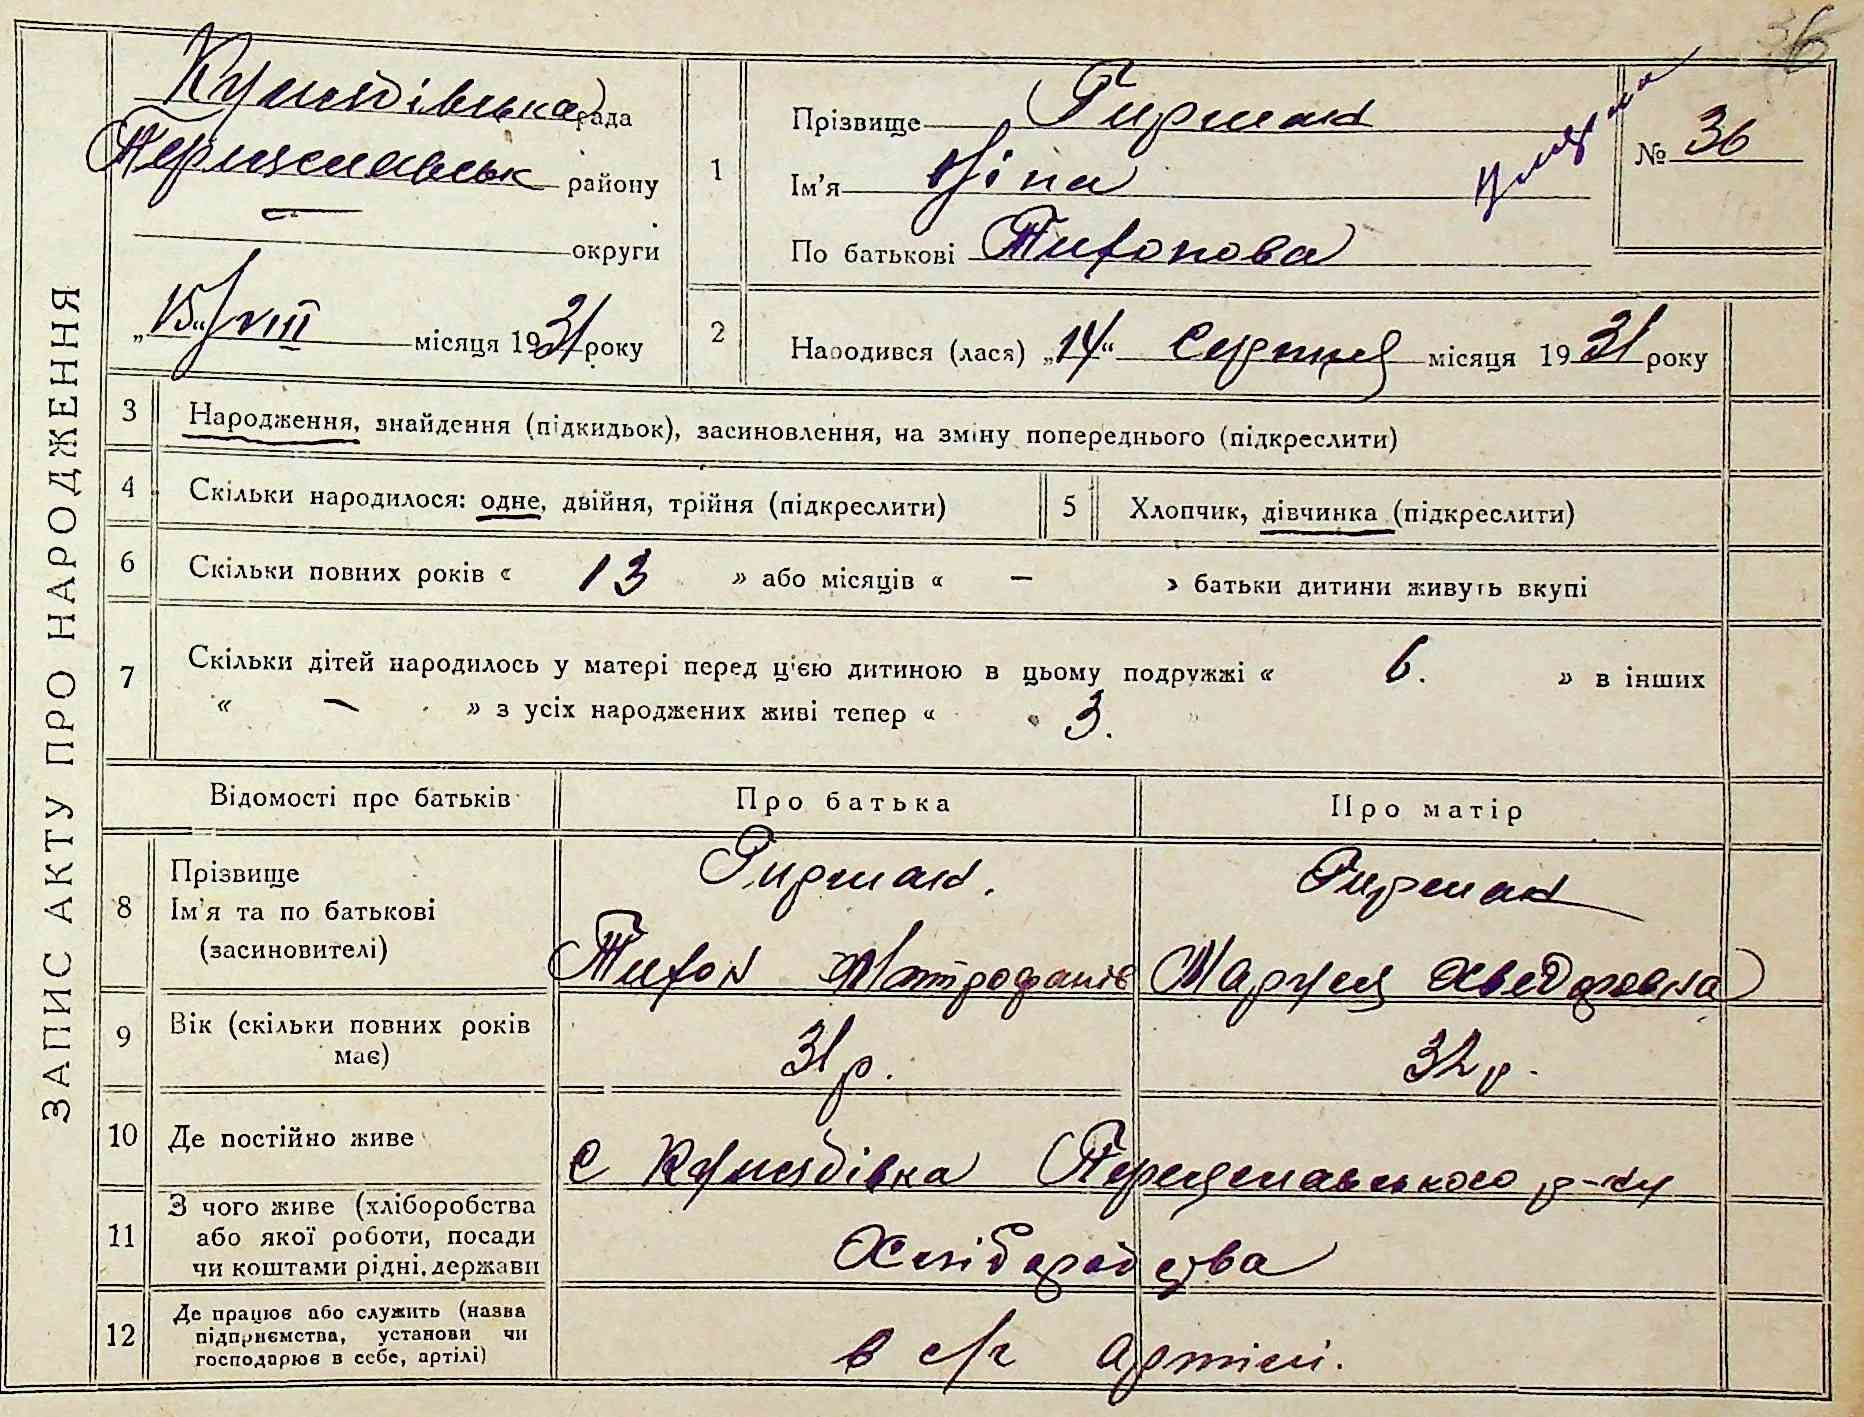 36
ЗАПИС АКТУ ПРО НАРОДЖЕННЯ
рада
району
округи
„15“/VIII місяця 1931 року
1
Прізвище Гирман
Ім'я Ніна
По батькові Тихонова
№ 36
2
Народився (лася) „14“ серпня місяця 1931 року
3 Народження, знайдення (підкидьок), засиновлення, на зміну попереднього (підкреслити)
4 Скільки народилося: одне, двійня, трійня (підкреслити)
5 Хлопчик, дівчинка (підкреслити)
6 Скільки повних років « 13 » або місяців « — » батьки дитини живуть вкупі
7 Скільки дітей народилось у матері перед цією дитиною в цьому подружжі « 6. » в інших
« — » з усіх народжених живі тепер « 3. »
Відомості про батьків Про батька Про матір
8 Прізвище
Ім'я та по батькові
(засиновителі)
Гирман.
Тихон Митрофанів
Гирман
Маруся Хведоровна
9 Вік (скільки повних років
має)
31 р. 32 р.
10 Де постійно живе
с р-ну
11 З чого живе (хліборобства
або якої роботи, посади
чи коштами рідні, держави
Хліборобства
12 Де працює або служить (назва
підприємства, установи чи
господарює в себе, артілі)
в с/г артілі.